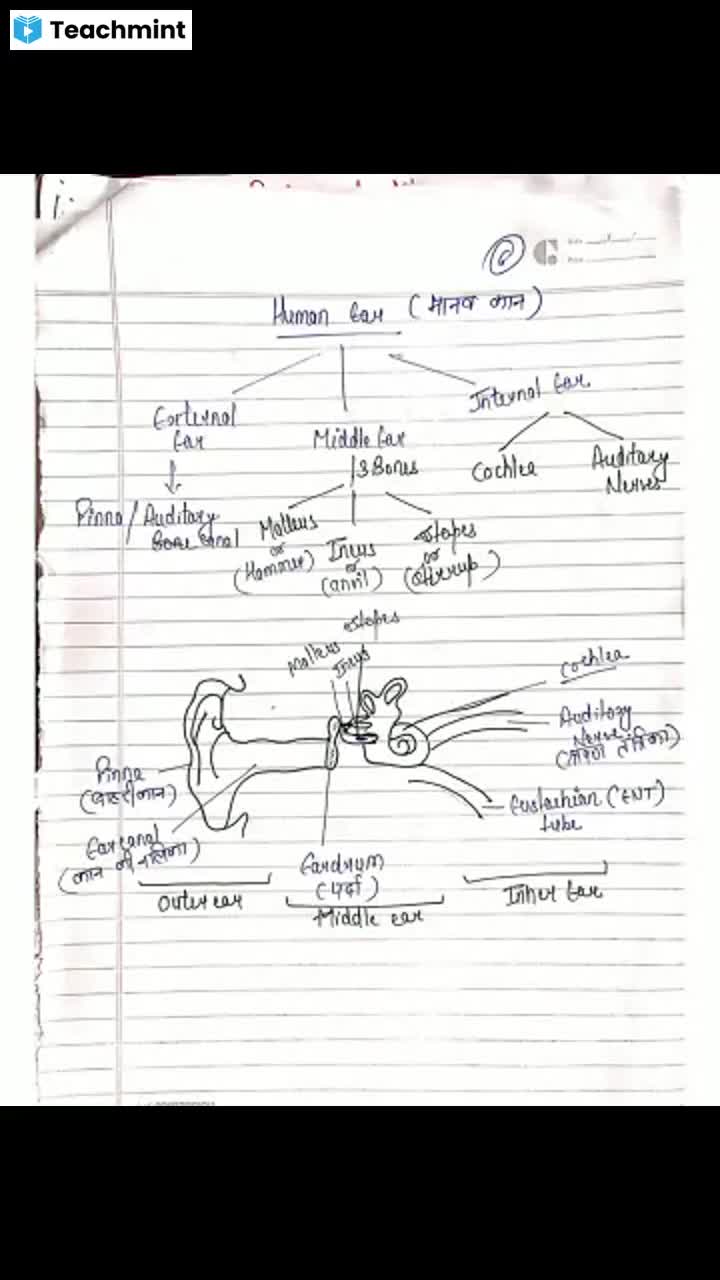 Teachmint
Human Ear (मानव कान)
External
Ear
Middle Ear
3 Bones
Internal Ear
Cochlea
Auditory
Nerves
Pinna / Auditory
canal
Malleus
or
(Hammer)
Incus
or
(anvil)
Stapes
or
(Stirrup)
Stapes
Malleus
Incus
Cochlea
Auditory
Nerve
Pinna
(बाहरी कान)
Ear canal
(कान की नलिका)
Eustachian (ENT)
tube
Eardrum
(पर्दा)
Outer ear
Middle ear
Inner Ear